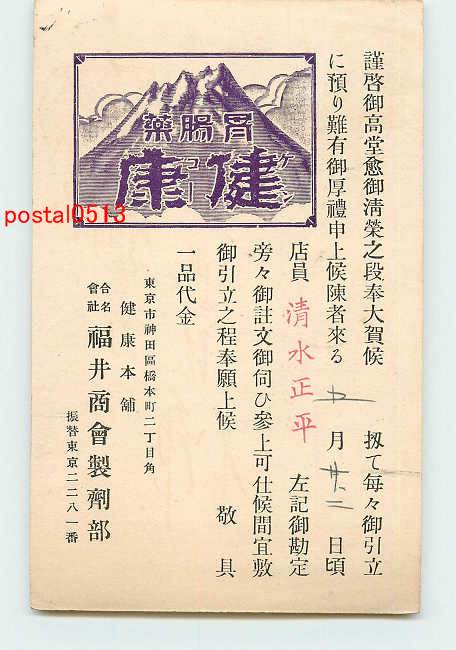 謹啓御高堂愈御淸榮之段奉大賀候　扨て每々御引立
に預り難有御厚禮申上候陳者來る　月　日頃
店員　淸水正平　左記御勘定
旁々御註文御伺ひ參上可仕候間宜敷
御引立之程奉願上候　敬具
一品代金
胃腸藥
健康
ケンコー
東京市神田區橋本町二丁目角
健康本舖
合名會社　福井商會製劑部
振替東京二二八一番
postal0513